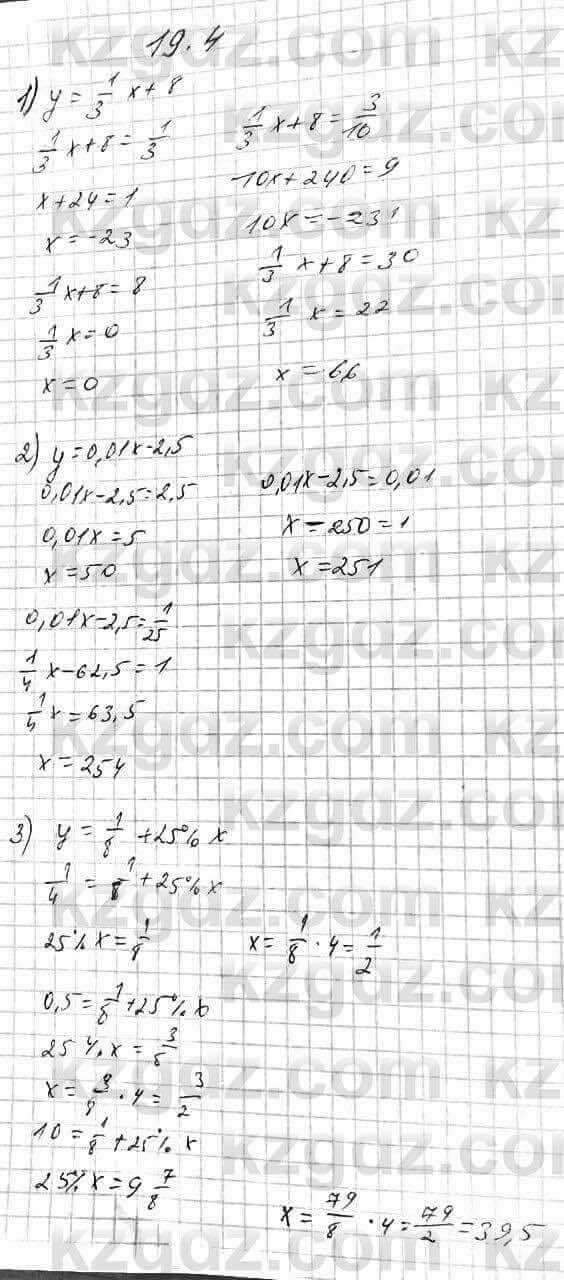 19.4
1) y = 1/3 x + 8
1/3 x + 8 = 1/3
x + 24 = 1
x = -23
1/3 x + 8 = 8
1/3 x = 0
x = 0
1/3 x + 8 = 3/10
10x + 240 = 9
10x = -231
1/3 x + 8 = 30
1/3 x = 22
x = 66
2) y = 0,01x - 2,5
0,01x - 2,5 = 2,5
0,01x = 5
x = 50
0,01x - 2,5 = 1/25
1/4 x - 62,5 = 1
1/4 x = 63,5
x = 254
0,01x - 2,5 = 0,01
x - 250 = 1
x = 251
3) y = 1/8 + 25% x
1/4 = 1/8 + 25% x
25% x = 1/8
x = 1/8 · 4 = 1/2
0,5 = 1/8 + 25% x
25% x = 3/8
x = 3/8 · 4 = 3/2
10 = 1/8 + 25% x
25% x = 9 7/8
x = 79/8 · 4 = 79/2 = 39,5
kzgdz.com